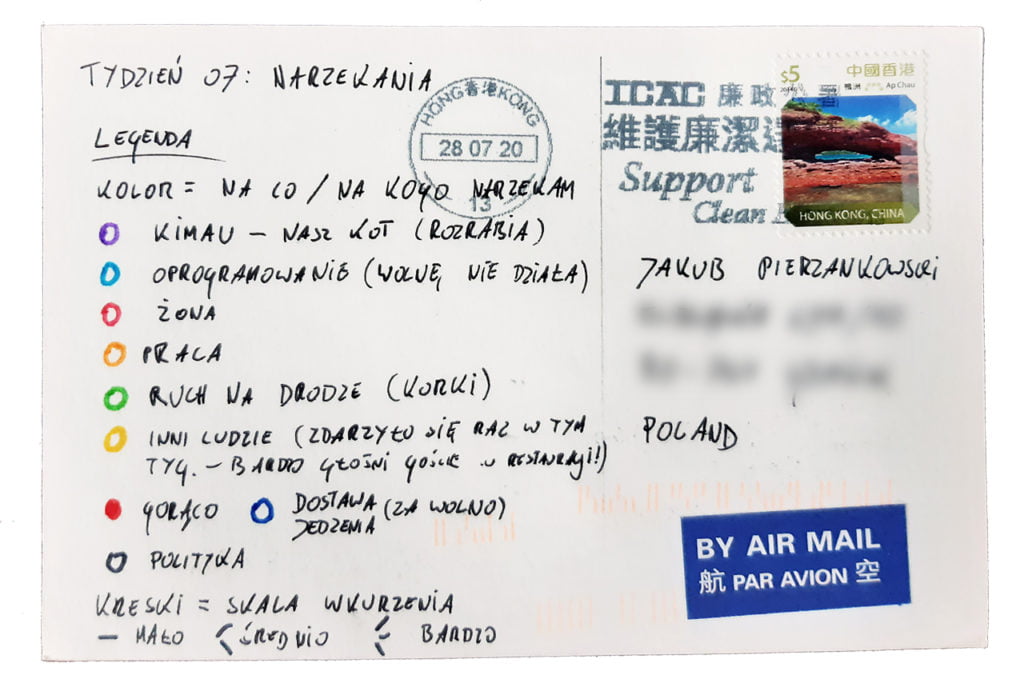 TYDZIEŃ 07: NARZEKANIA
LEGENDA
KOLOR = NA CO / NA KOGO NARZEKAM
KIMAU – NASZ KOT (ROZRABIA)
OPROGRAMOWANIE (WOLNE, NIE DZIAŁA)
ŻONA
PRACA
RUCH NA DRODZE (KORKI)
INNI LUDZIE (ZDARZYŁO SIĘ RAZ W TYM
TYG. – BARDZO GŁOŚNI GOŚCIE W RESTAURACJI!)
GORĄCO
DOSTAWA (ZA WOLNO)
JEDZENIA
POLITYKA
KRESKI = SKALA WKURZENIA
– MAŁO ŚREDNIO BARDZO
HONG香港KONG
28 07 20
13
ICAC 廉政
維護廉潔
Support
Clean
$5
中國香港
鴨洲 Ap Chau
HONG KONG, CHINA
JAKUB PIERZANKOWSKI
POLAND
BY AIR MAIL
航 PAR AVION 空